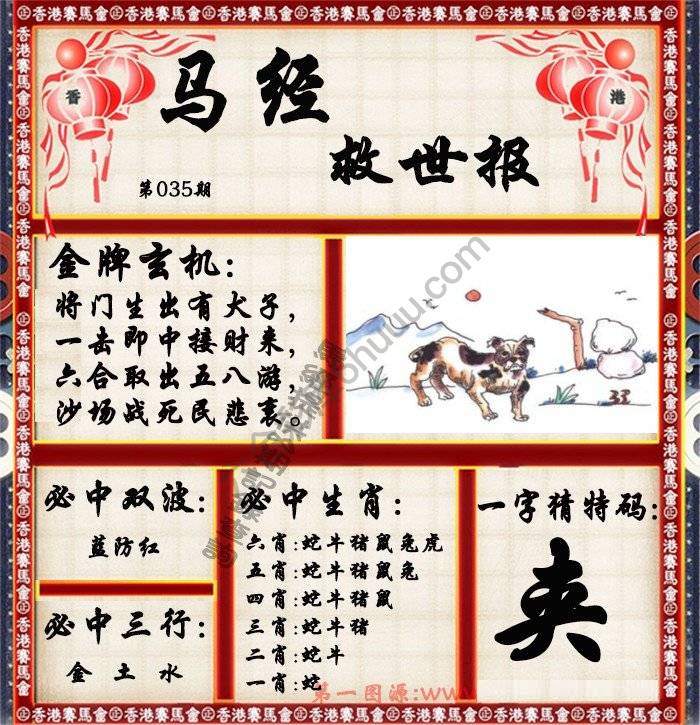 香港賽馬會
香
港
马经
救世报
第035期
金牌玄机:
将门生出有犬子,
一击即中接财来,
六合取出五八游,
沙场战死民悲哀。
33
必中双波:
蓝防红
必中三行:
金 土 水
必中生肖:
六肖:蛇牛猪鼠兔虎
五肖:蛇牛猪鼠兔
四肖:蛇牛猪鼠
三肖:蛇牛猪
二肖:蛇牛
一肖:蛇
一字猜特码:
夹
第一图源:www